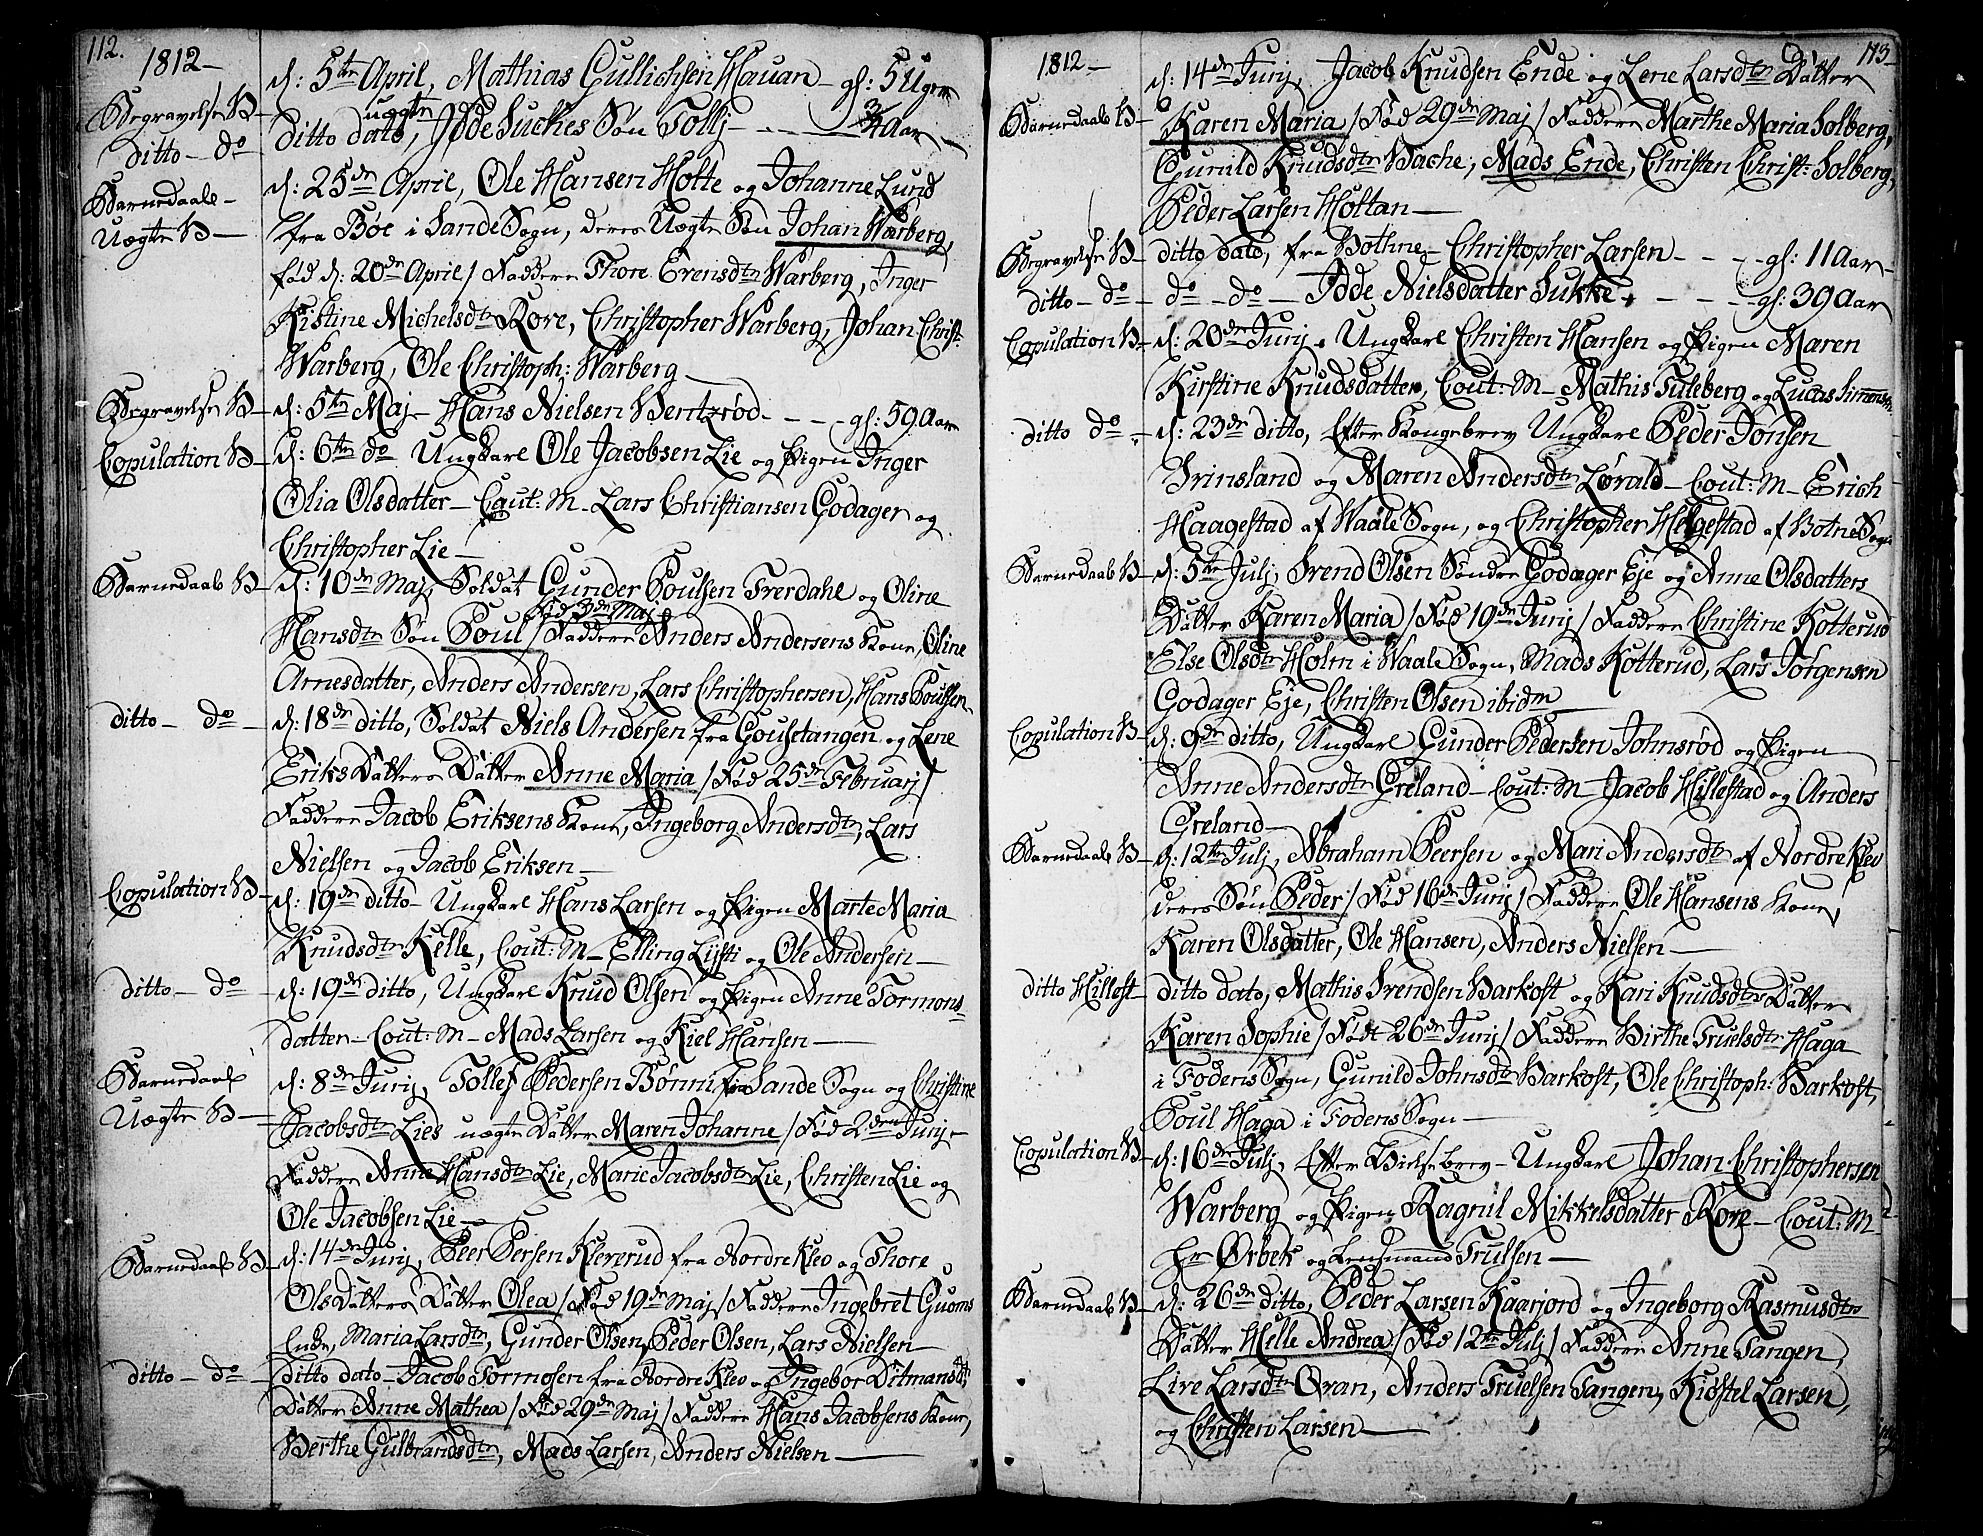 112.
1812-
Begravelse B- d: 5te April, Mathias Gullichsen Hauan - gl: 5 Uger
ditto - do ditto dato, uægte Idde Suckes Søn Tollj - - - 3/4 Aar
Barnedaab- d: 25de April, Ole Hansen Holte og Johanne Lund
Uægte B- fra Bøe i Sande Sogn, deres Uægte Søn Johan Warberg,
fød d: 20de April / Faddere Thore Erensdtr Warberg, Inger
Kistine Michelsdtr Røre, Christopher Warberg, Johan Christ:
Warberg, Ole Christoph: Warberg
Begravelse B- d: 5te Maj - Hans Nielsen Bentzrød - - - gl: 59 Aar
Copulation B- d: 6te do Ungkarl Ole Jacobsen Lie og Pigen Inger
Olia Olsdatter - Caut: M - Lars Christiansen Godager og
Christopher Lie -
Barnedaab B- d: 10de Maj, Soldat Gunder Poulsen Frerdahl og Oline
Hansdtr Søn Poul / fød 3de Maj / Faddere Anders Andersens Kone, Oline
Arnesdatter, Anders Andersen, Lars Christophersen, Hans Poulsen
ditto - do - d: 18de ditto, Soldat Niels Andersen fra Gousetangen og Lene
Eriks Datters Datter Anne Maria / Fød 25de Februarj /
Faddere Jacob Eriksens Kone, Ingeborg Andersdtr, Lars
Nielsen og Jacob Eriksen -
Copulation B- d: 19de ditto - Ungkarl Hans Larsen og Pigen Marte Maria
Knudsdtr Kelle, Cout: M - Elling Lysti og Ole Andersen -
ditto - do - d: 19de ditto, Ungkarl Knud Olsen og Pigen Anne Tormons-
datter - Cout: M - Mads Larsen og Kiel Hansen -
Barnedaab d: 8de Junj, Tollef Pedersen Bønni fra Sande Sogn og Christine
Uægte B- Jacobsdtr Lies uægte Datter Maren Johanne / Fød 2den Junj -
Faddere Anne Hansdtr Lie, Marie Jacobsdtr Lie, Christen Lie og
Ole Jacobsen Lie -
Barnedaab B- d: 14de Junj, Peer Persen Klererud fra Nordre Kleo og Thore
Ols Datters Datter Olea / Fød 19de Maj / Faddere Ingebret Guoms
Ende, Maria Larsdtr, Gunder Olsen, Peder Olsen, Lars Nielsen
ditto - do - Ditto dato - Jacob Tormosen fra Nordre Kleo og Ingebor Ditmansdtr
Datter Anne Mathea / Fød 29de Maj / Faddere Hans Jacobsens Kone,
Berthe Gulbrandsdtr, Mads Larsen, Anders Nielsen -
113-
1812- d: 14de Junj, Jacob Knudsen Ende og Lene Larsdtr Datter
Barnedaab B- Karen Maria / Fød 29de Maj / Faddere Marthe Maria Solberg,
Gunild Knudsdtr Bache, Mads Ende, Christen Christ: Solberg,
Peder Larsen Holtan -
Begravelse B- ditto dato, fra Bothne - Christopher Larsen - - - gl: 11 Aar -
ditto - do - do - do - Idde Nielsdatter Sukke, - - - gl: 39 Aar
Copulation B- d: 20de Junj, Ungkarl Christen Hansen og Pigen Maren
Kirstine Knudsdatter, Cout: M - Mathis Fuleberg og Lucas Simensen
ditto do - d: 23de ditto, Efter Kongebrev Ungkarl Peder Jonsen
Frinsland og Maren Andersdtr Lørald - Cout: M - Erich
Haagestad af Waale Sogn, og Christopher Helgestad af Botne Sogn
Barnedaab B- d: 5te Julj, Svend Olsen Søndre Godager Eje og Anne Olsdatters
Datter Karen Maria / Fød 19de Junj / Faddere Christine Kotterud
Else Olsdtr Holm i Waale Sogn, Mads Kotterud, Lars Jørgensen
Godager Eje, Christen Olsen ibidm
Copulation B- d: 9de ditto, Ungkarl Gunder Pedersen Johnsrød og Pigen
Anne Andersdtr Greland - Cout: M - Jacob Hillestad og Anders
Greland -
Barnedaab B- d: 12te Julj, Abraham Peersen og Mari Andersdtr af Nordre Kleo
deres Søn Peder / Fød 16de Junj / Faddere Ole Hansens Kone,
Karen Olsdatter, Ole Hansen, Anders Nielsen -
ditto Hillest ditto dato, Mathis Svendsen Barkost og Kari Knudsdtrs Datter
Karen Sophie / Født 26de Junj / Faddere Birthe Truelsdtr Haga
i Fodens Sogn, Gunild Johnsdtr Barkost, Ole Christoph: Barkost,
Poul Haga i Fodens Sogn -
Copulation B- d: 16de Julj, Efter Vielsebrev - Ungkarl Johan Christophersen
Warberg og Pigen Ragnil Mikkelsdatter Røre - Cout: M
Hr Ørbek og Lensmand Trulsen -
Barnedaab B- d: 26de ditto, Peder Larsen Kaarjord og Ingeborg Rasmusdtrs
Datter Helle Andrea / Fød 12te Julj / Faddere Anne Tangen,
Live Larsdtr Qvan, Anders Truelsen Tangen, Kiostel Larsen,
og Christen Larsen -